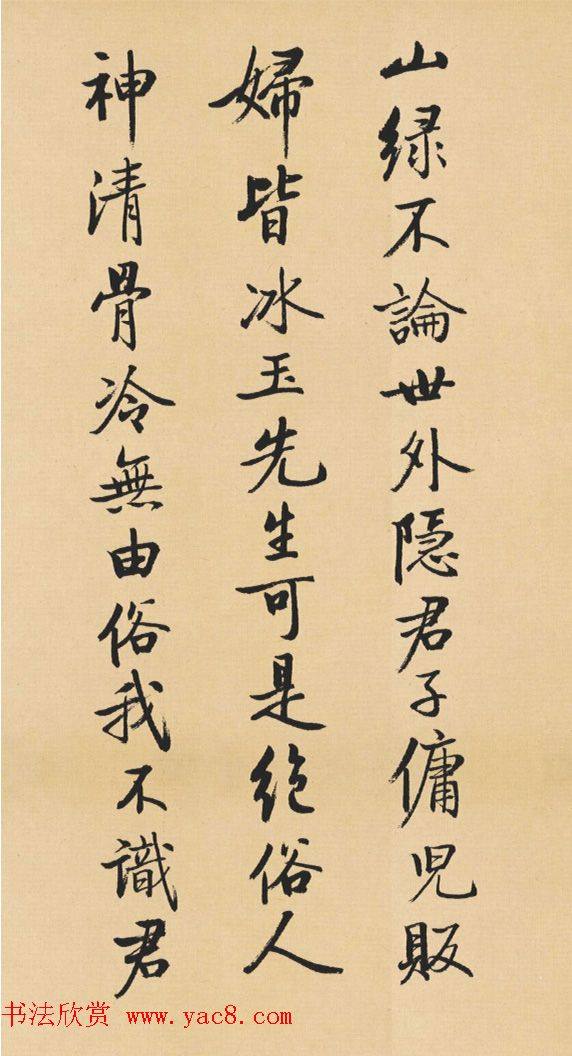 山緑不論世外隠君子傭児販
婦皆冰玉先生可是絶俗人
神清骨冷無由俗我不識君
书法欣赏 www.yac8.com